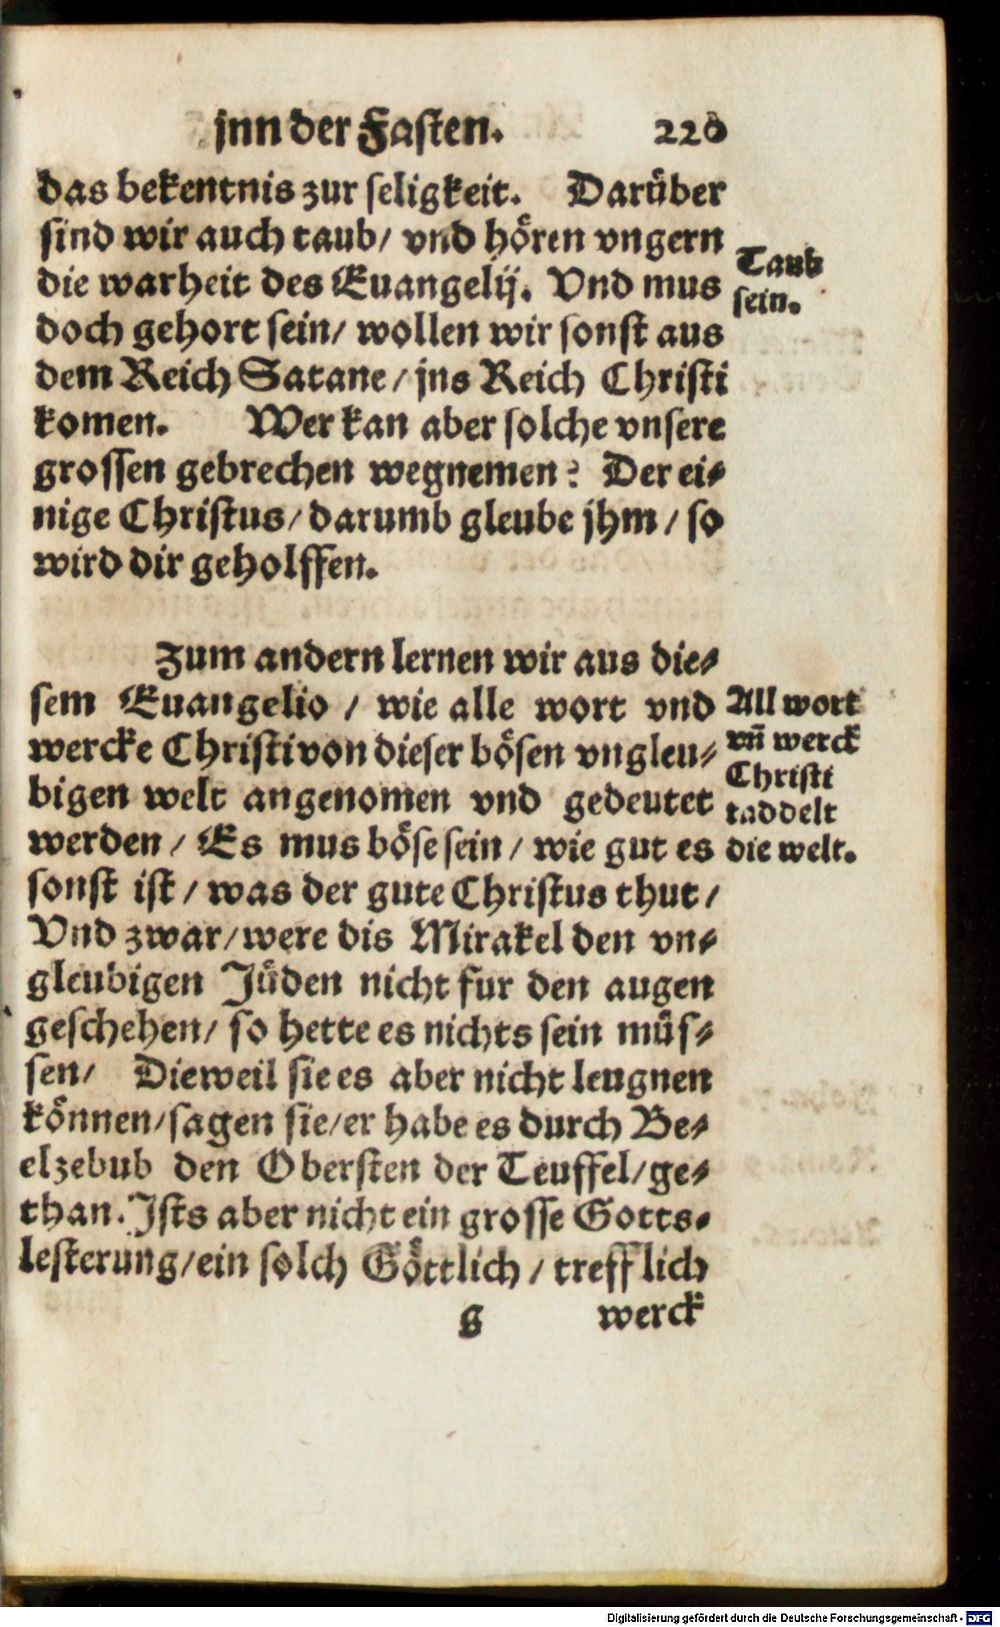 jnn der Fasten. 220
das bekentnis zur seligkeit. Darüber
sind wir auch taub/ vnd hören vngern
die warheit des Euangelij. Vnd mus
doch gehort sein/ wollen wir sonst aus
dem Reich Satane/ jns Reich Christi
komen. Wer kan aber solche vnsere
grossen gebrechen wegnemen? Der ei⸗
nige Christus/ darumb gleube jhm/ so
wird dir geholffen.
Taub
sein.
Zum andern lernen wir aus die⸗
sem Euangelio/ wie alle wort vnd
wercke Christi von dieser bösen vngleu⸗
bigen welt angenomen vnd gedeutet
werden/ Es mus böse sein/ wie gut es
sonst ist/ was der gute Christus thut/
Vnd zwar/ were dis Mirakel den vn⸗
gleubigen Jüden nicht fur den augen
geschehen/ so hette es nichts sein müs⸗
sen/ Dieweil sie es aber nicht leugnen
können/ sagen sie/ er habe es durch Be⸗
elzebub den Obersten der Teuffel/ ge⸗
than. Jsts aber nicht ein grosse Gotts⸗
lesterung/ ein solch Göttlich/ trefflich
All wort
vn̄ werck
Christi
taddelt
die welt.
g werck
Digitalisierung gefördert durch die Deutsche Forschungsgemeinschaft - DFG